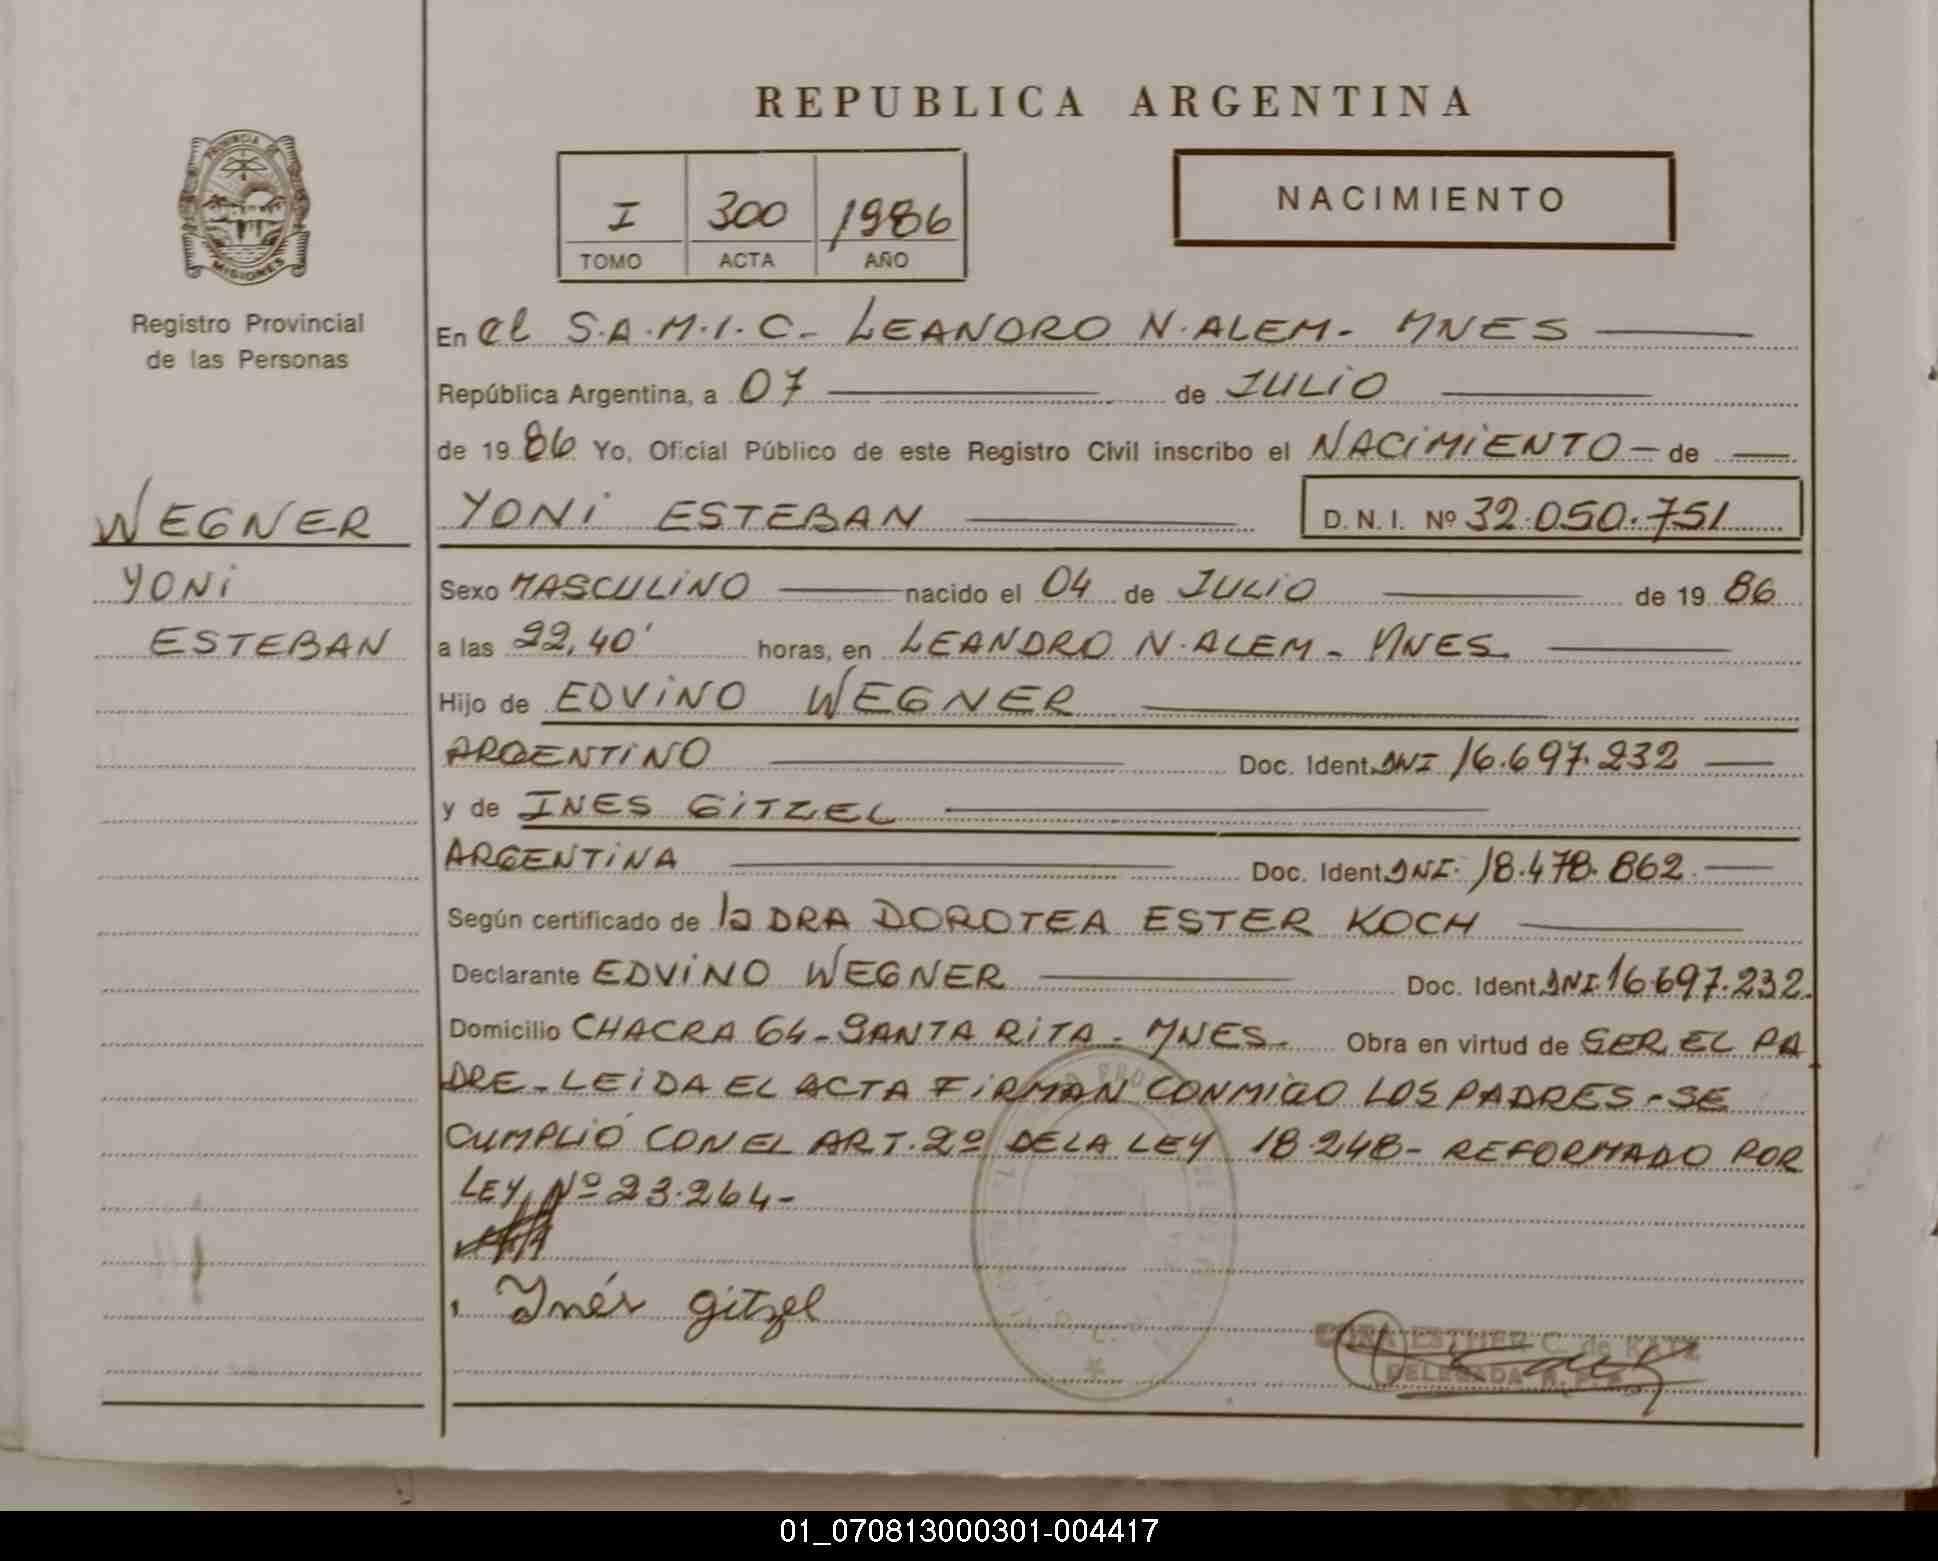 REPUBLICA ARGENTINA
PROVINCIA DE
MISIONES
Registro Provincial
de las Personas
I 300 1986
TOMO ACTA AÑO
NACIMIENTO
En el S.A.M.I.C.- LEANDRO N. ALEM- MNES
República Argentina, a 07 de JULIO
de 19 86 Yo, Oficial Público de este Registro Civil inscribo el NACIMIENTO - de
WEGNER
YONI
ESTEBAN
YONI ESTEBAN D. N. I. Nº 32.050.751
Sexo MASCULINO nacido el 04 de JULIO de 19 86
a las 22,40' horas, en LEANDRO N. ALEM - MNES.
Hijo de EDVINO WEGNER
ARGENTINO Doc. Ident. DNI 16.697.232
y de INES GITZEL
ARGENTINA Doc. Ident. DNI. 18.478.862.
Según certificado de la DRA DOROTEA ESTER KOCH
Declarante EDVINO WEGNER Doc. Ident. DNI 16.697.232.
Domicilio CHACRA 64 - SANTA RITA - MNES. Obra en virtud de SER EL PA
DRE - LEIDA EL ACTA FIRMAN CONMIGO LOS PADRES - SE
CUMPLIÓ CON EL ART. 2º DE LA LEY 18.248 - REFORMADO POR
LEY Nº 23.264-
Inés Gitzel
ESTHER C. de KATZ
DELEGADA
01_070813000301-004417